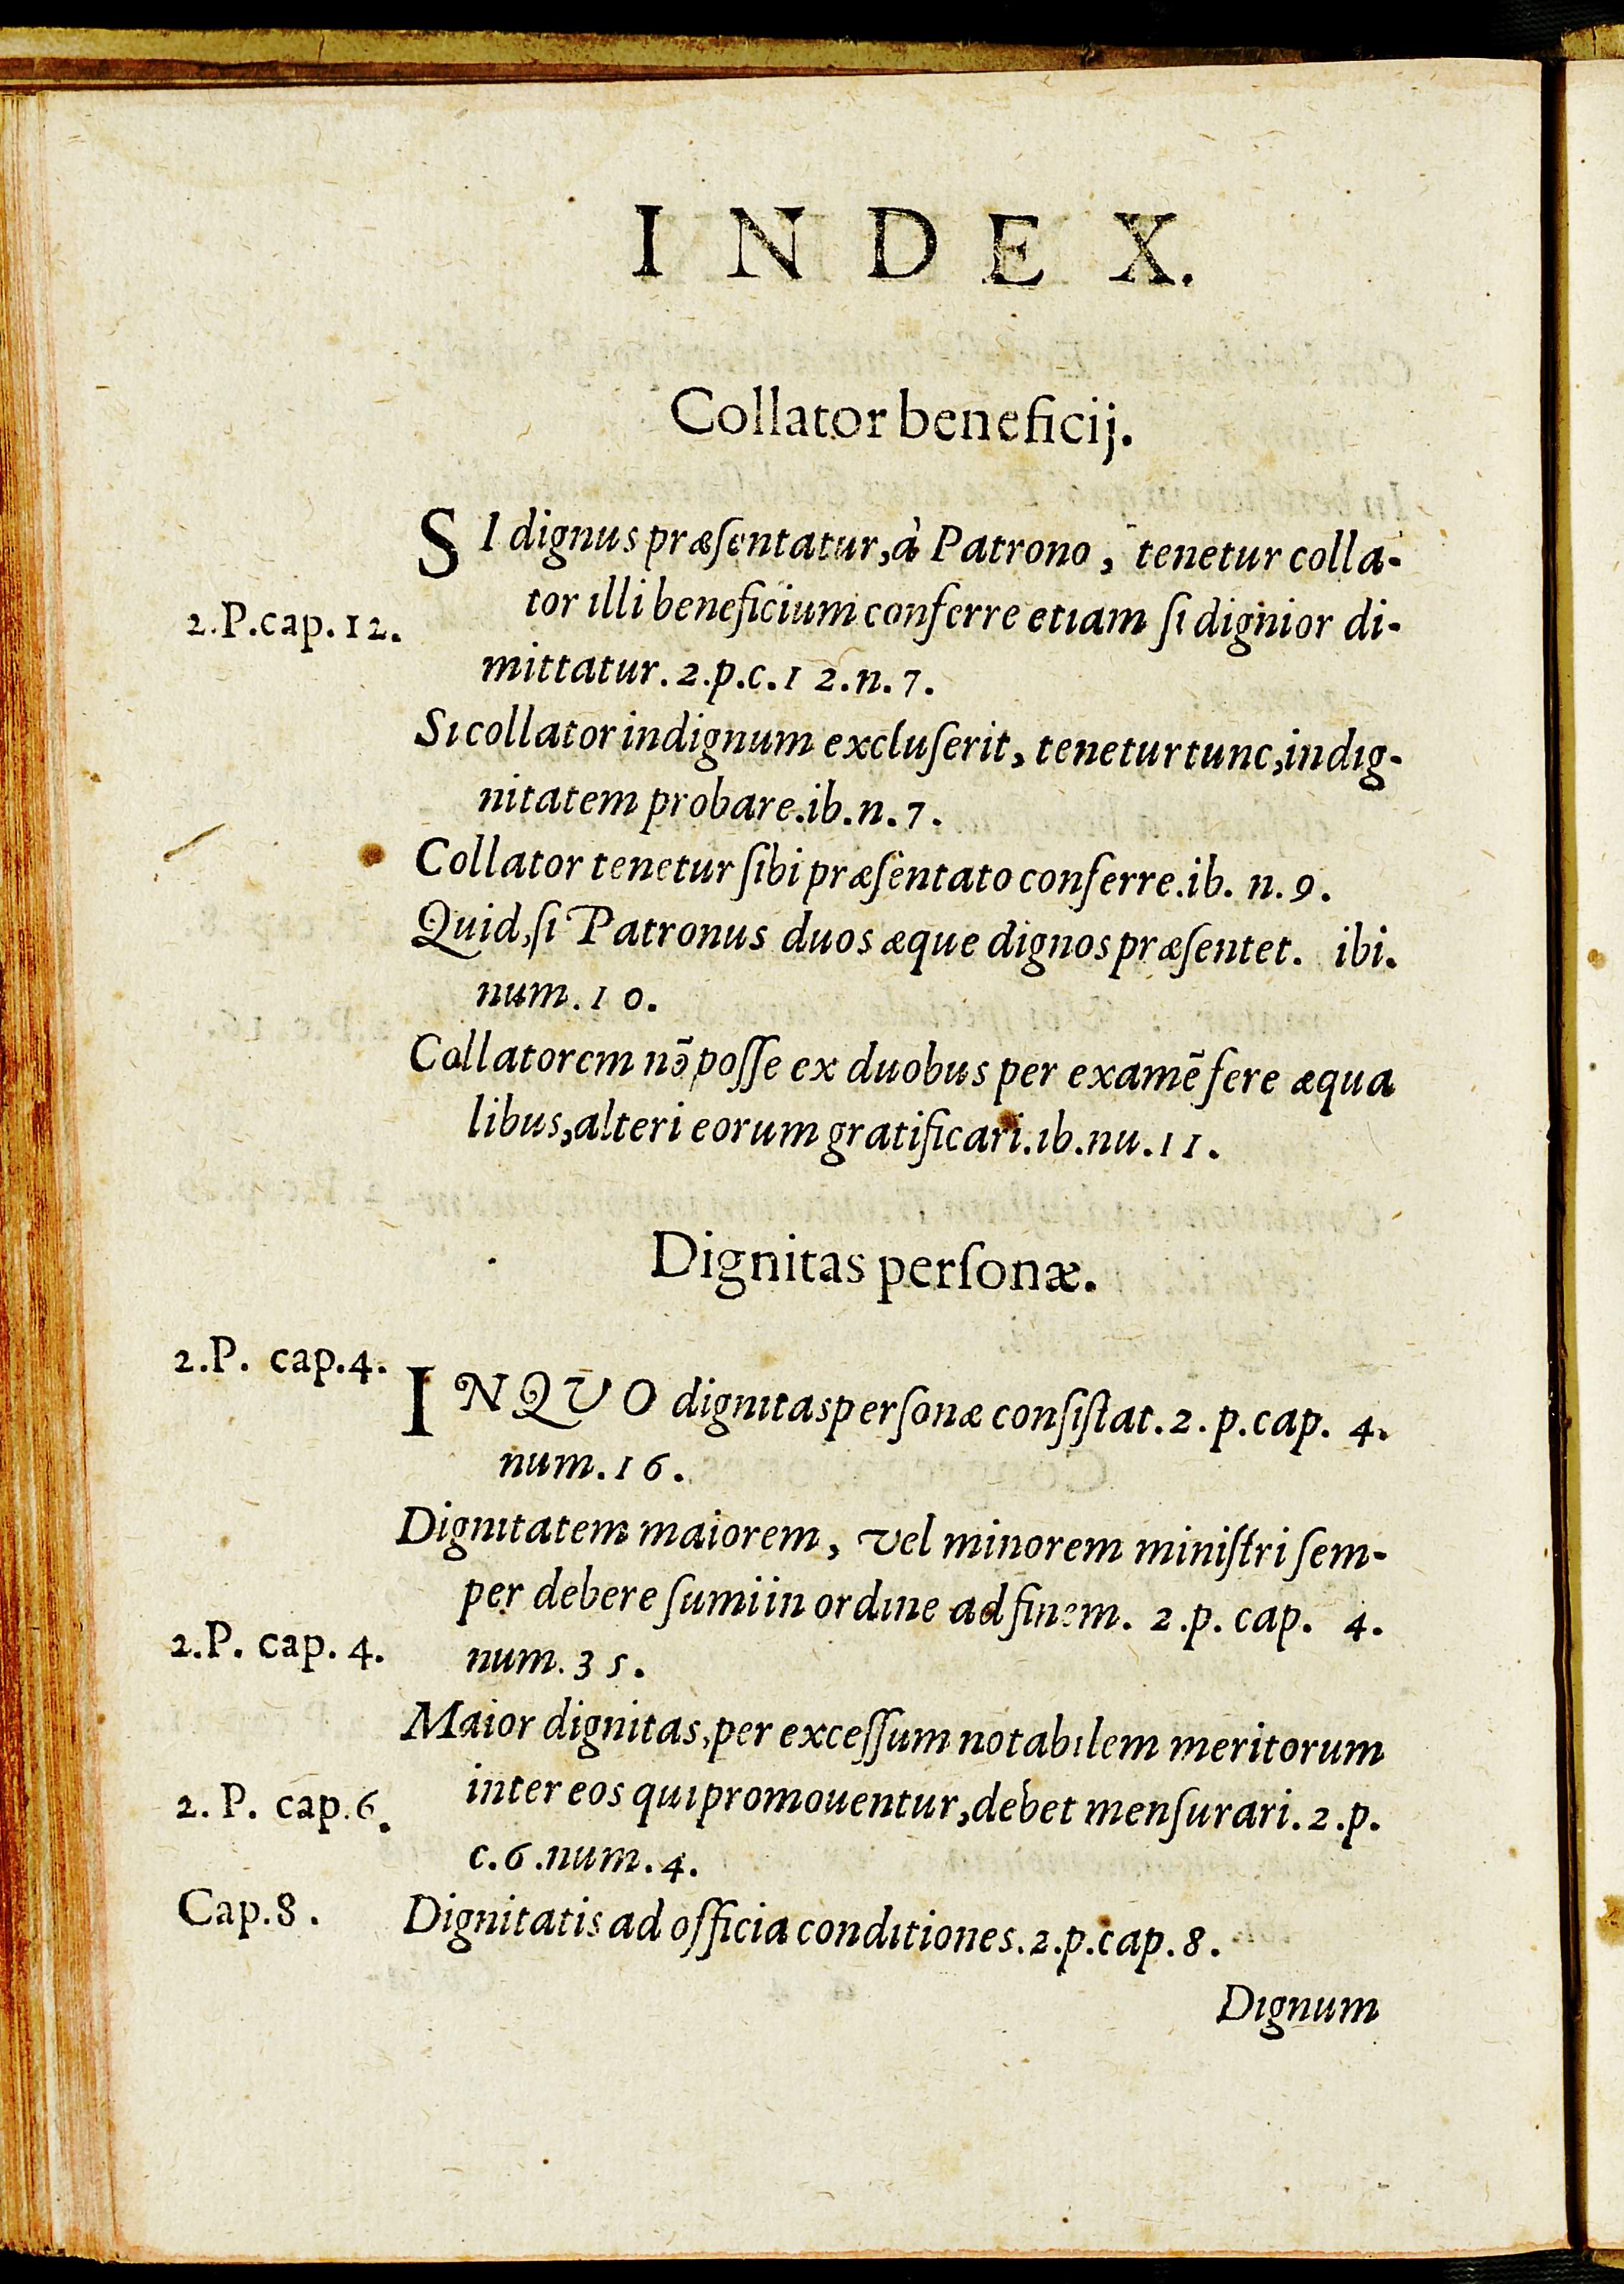 INDEX.
Collator beneficij.
SI dignus præſentatur, à Patrono, tenetur colla-
2.P.cap.12.
tor illi beneficium conferre etiam ſi dignior di-
mittatur. 2.p.c.12.n.7.
Si collator indignum excluſerit, tenetur tunc, indig-
nitatem probare. ib. n. 7.
Collator tenetur ſibi præſentato conferre. ib. n. 9.
Quid, ſi Patronus duos æque dignos præſentet. ibi.
num. 10.
Collatorem nõ poſſe ex duobus per examẽ fere æqua
libus, alteri eorum gratificari. ib. nu. 11.
Dignitas perſonæ.
2.P. cap.4.
IN QVO dignitas perſonæ conſiſtat. 2. p. cap. 4.
num. 16.
Dignitatem maiorem, vel minorem miniſtri ſem-
per debere ſumi in ordine ad finem. 2.p. cap. 4.
2.P. cap. 4.
num. 35.
Maior dignitas, per exceſſum notabilem meritorum
inter eos qui promouentur, debet menſurari. 2.p.
2. P. cap.6.
c.6.num.4.
Cap.8.
Dignitatis ad officia conditiones. 2.p.cap.8.
Dignum